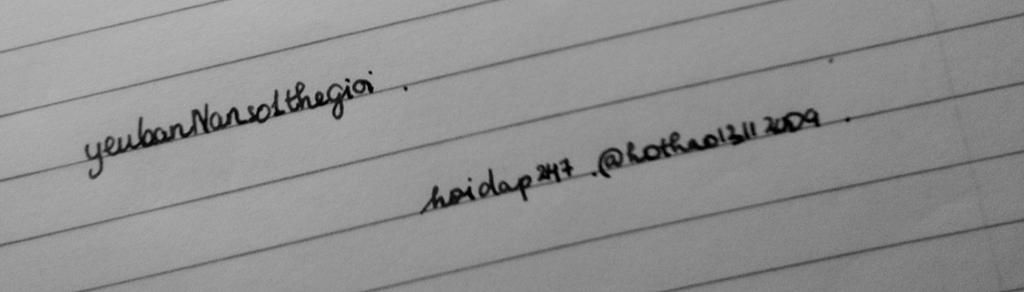 yeubanNanso1thegioi.
hoidap247.@hothao13112009.